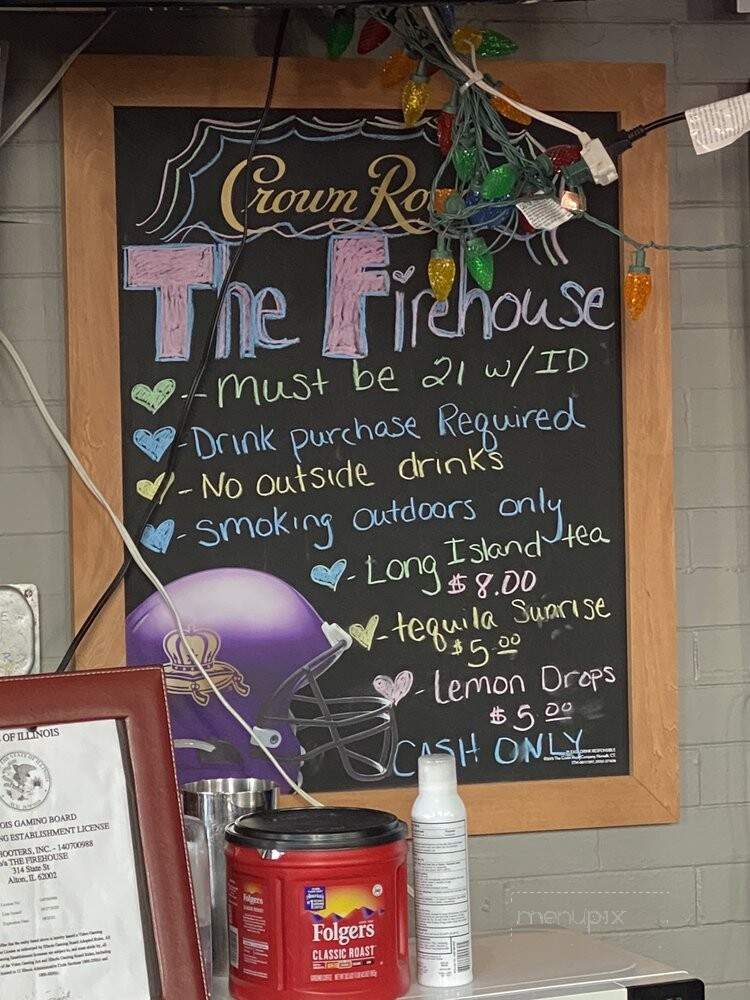 Crown Ro
The Firehouse
-- must be 21 w/ID
- Drink purchase Required
- No outside drinks
- smoking outdoors only
- Long Island tea
$8.00
- tequila Sunrise
$5.00
- Lemon Drops
$5.00
CASH ONLY
OF ILLINOIS
OIS GAMING BOARD
NG ESTABLISHMENT LICENSE
HOOTERS, INC. - 140700988
THE FIREHOUSE
314 State St
Alton, IL 62002
Folgers
Folgers
CLASSIC ROAST
menupix